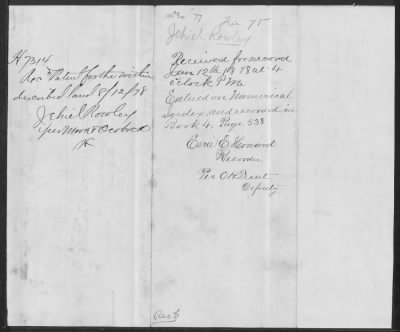 H 7314
Rec'd Patent for the within
described land 8/12/78
Jehiel Rowley
per Moon &
Jehiel Rowley
75
Received for record
Jan 12th 1878 at 4
o'clock P.M.
Entered on Numerical
Index, and record in
Book 4, Page 538
Ezra E. Howard
Recorder
Per C. H. Trout
Deputy